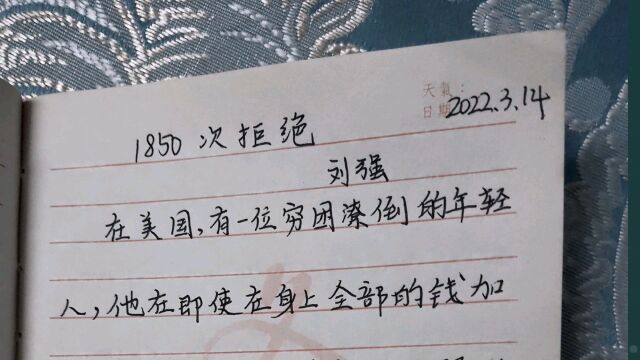 天氣：
日期：2022.3.14
1850次拒绝
刘强
在美国，有一位穷困潦倒的年轻
人，他在即使在身上全部的钱加